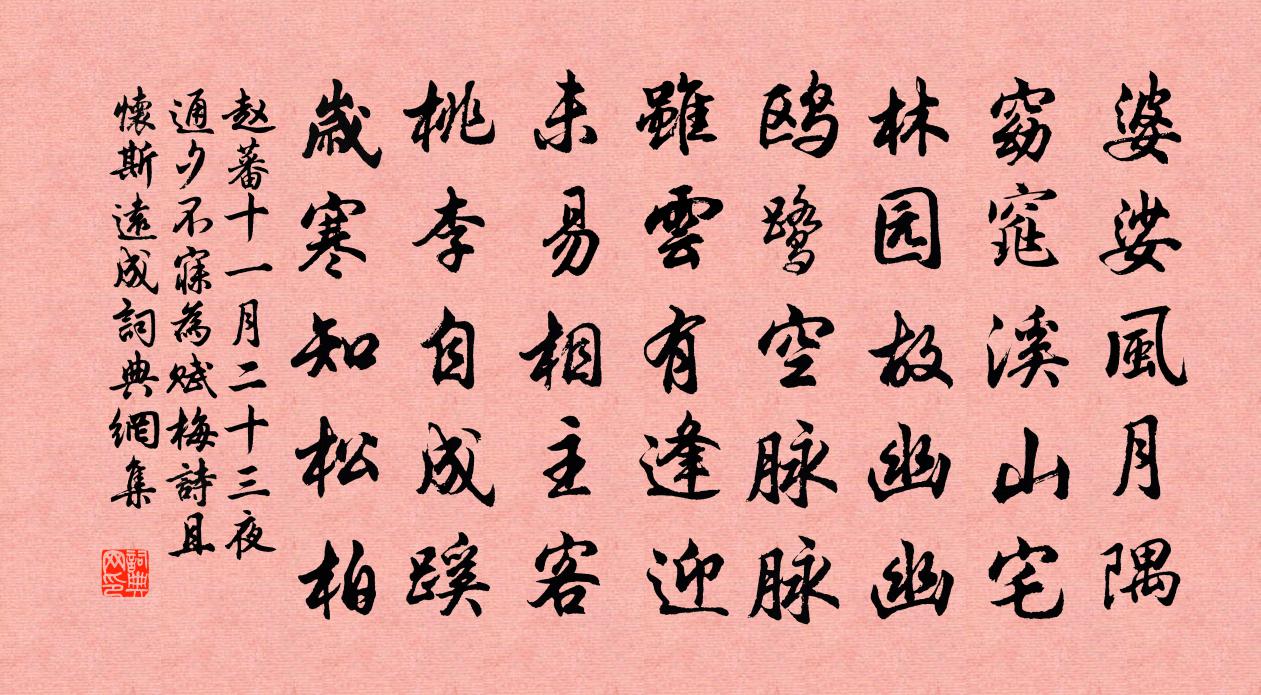 婆娑風月隅
窈窕溪山宅
林园故幽幽
鸥鹭空脉脉
雖雲有逢迎
未易相主客
桃李自成蹊
歲寒知松柏
赵蕃十一月二十三夜
通夕不寐為赋梅詩且
懷斯遠成詞典網集
詞典网印